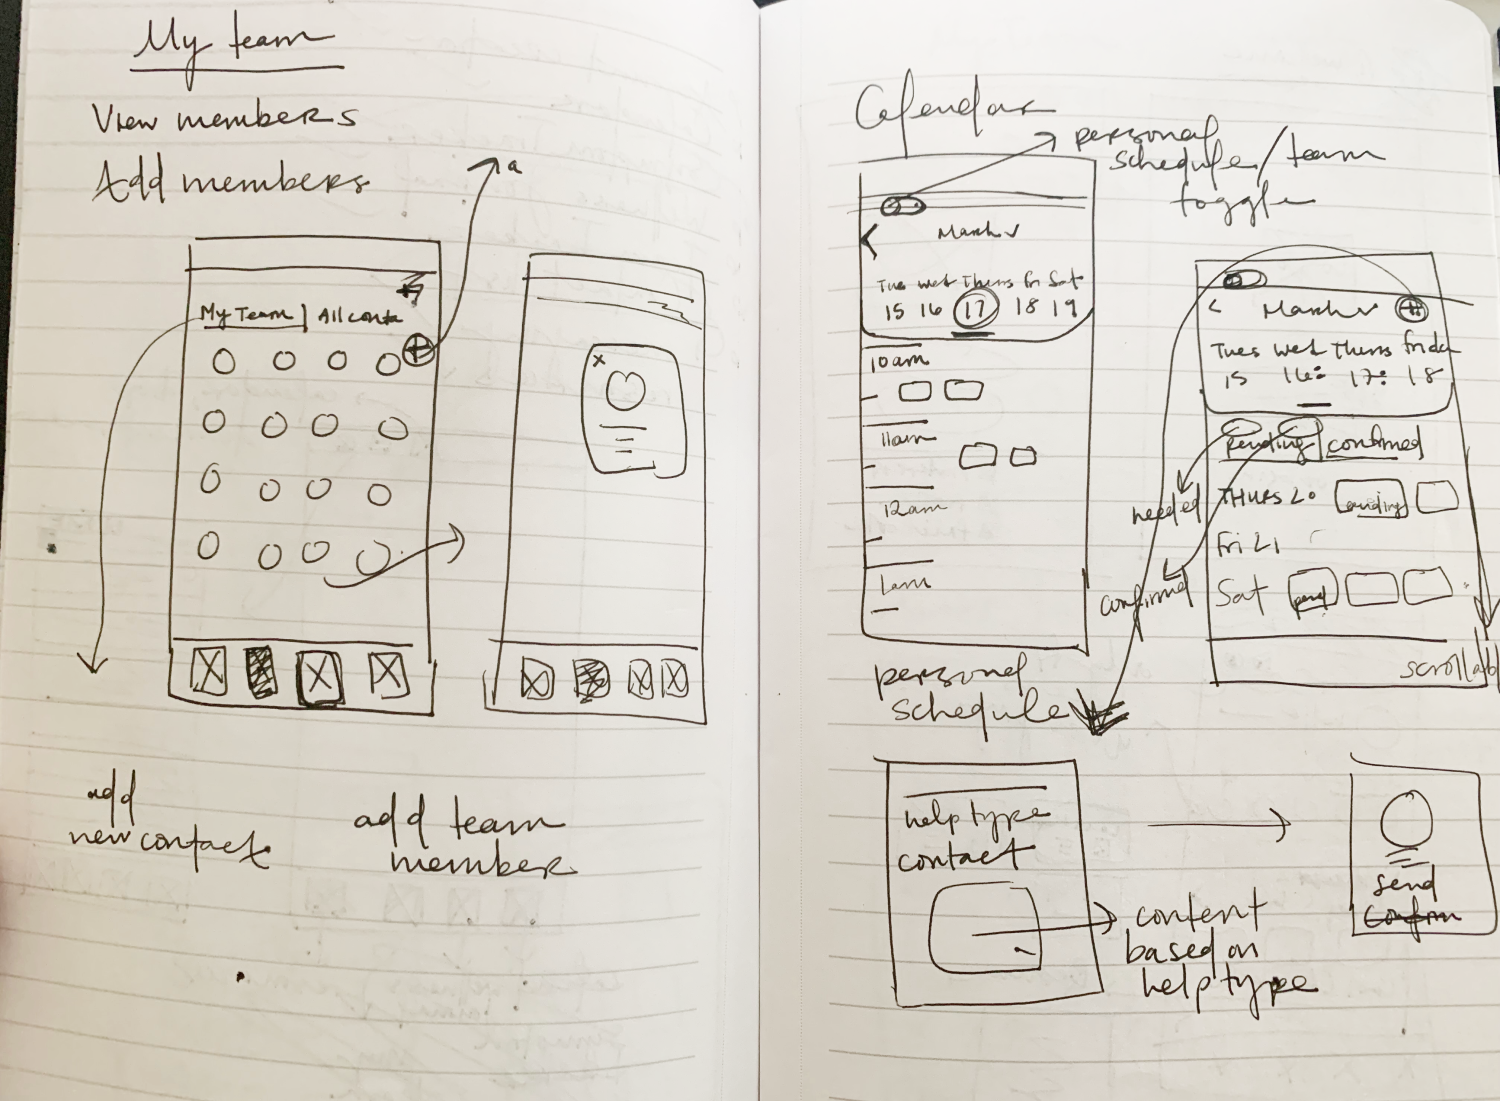 My team
View members
Add members
a
My Team | All conta
add
new contact
add team
member
Calendar
personal
schedule/team
toggle
March
Tues wed Thurs fri Sat
15 16 17 18 19
10am
11am
12am
1am
personal
schedule
March
Tues wed Thurs frida
15 16: 17: 18
pending | confirmed
needed
confirmed
THURS 20
Fri 21
Sat
scrollabl
help type
contact
content
based on
help type
send
Confirm